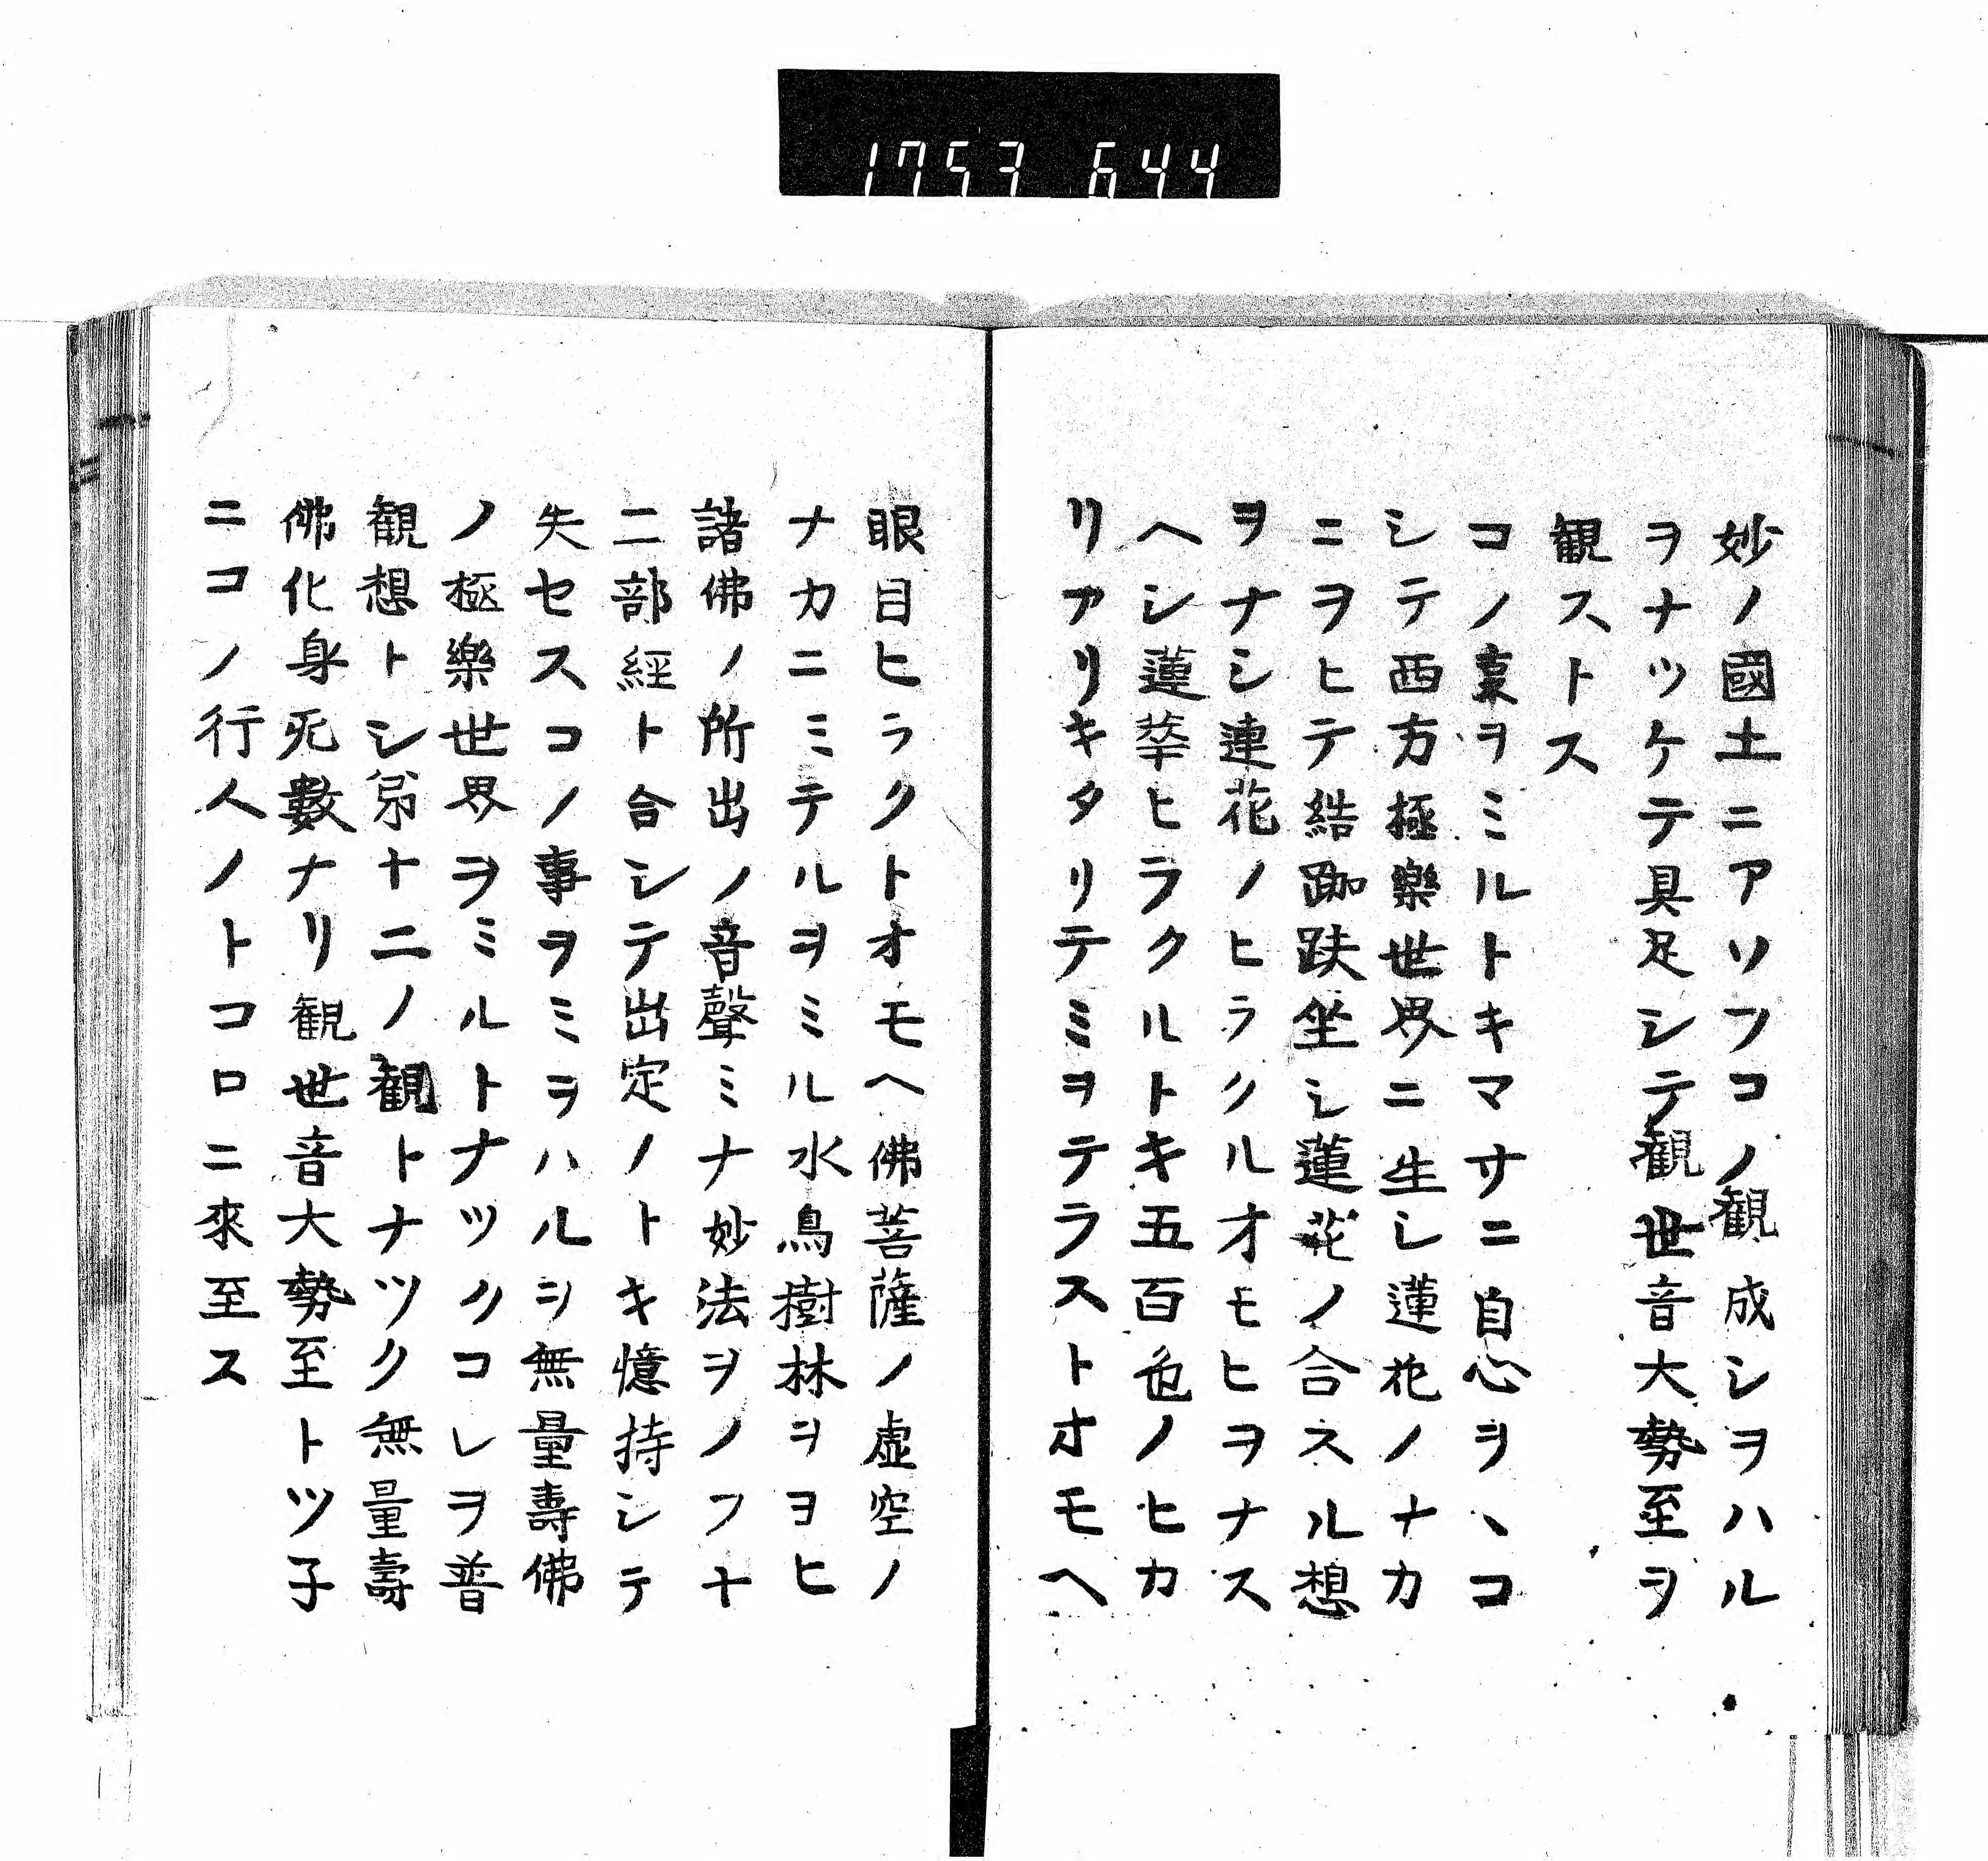 1753 644
妙ノ國土ニアソフコノ観成シヲハル
ヲナツケテ具足シテ観世音大勢至ヲ
観ストス
コノ事ヲミルトキマサニ自心ヲヽコ
シテ西方極樂世界ニ生シ蓮花ノナカ
ニヲヒテ結跏趺坐シ蓮花ノ合スル想
ヲナシ連花ノヒラクルオモヒヲナス
ヘシ蓮華ヒラクルトキ五百色ノヒカ
リアリキタリテミヲテラストオモヘ
眼目ヒラクトオモヘ佛菩薩ノ虚空ノ
ナカニミテルヲミル水鳥樹林ヲヨヒ
諸佛ノ所出ノ音聲ミナ妙法ヲノフ十
二部經ト合シテ出定ノトキ憶持シテ
失セスコノ事ヲミヲハルヲ無量壽佛
ノ極樂世界ヲミルトナツクコレヲ普
観想トシ第十二ノ観トナツク無量壽
佛化身无數ナリ観世音大勢至トツ子
ニコノ行人ノトコロニ來至ス